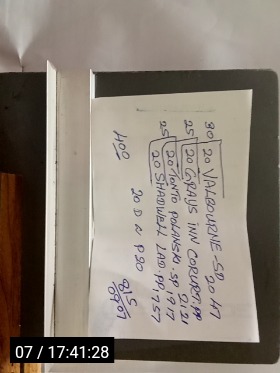 30 20 VALBOURNE - SP 20 47
25 20 GRAYS INN CORDARE, PP 21, 21
25 20 TONTO POLANSKI. SP 19, 17
20 SHADWELL LAD. PP, 7.57
400
20 D N P20
07 / 17:41:28